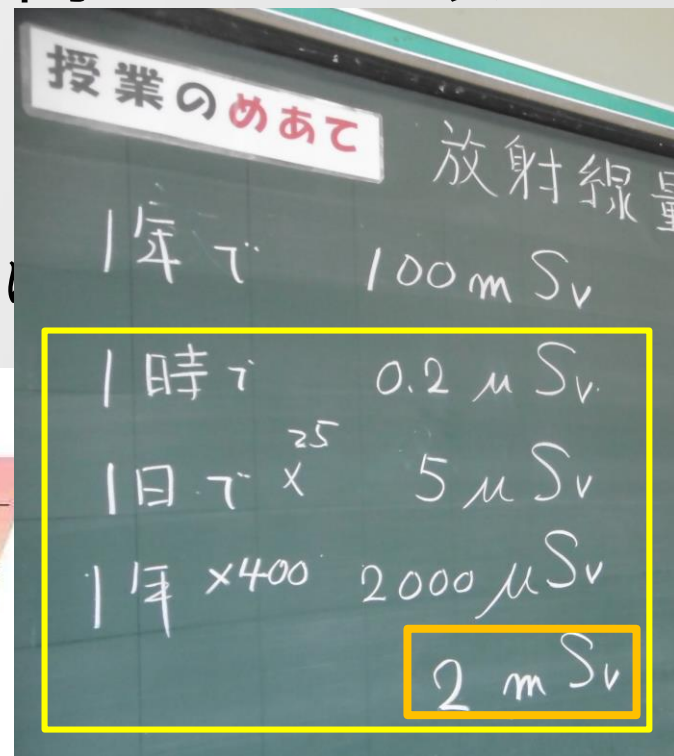 授業のめあて
放射線量
1年で 100mSv
1時で 0.2μSv.
1日で ×25 5μSv
1年 ×400 2000μSv
2mSv